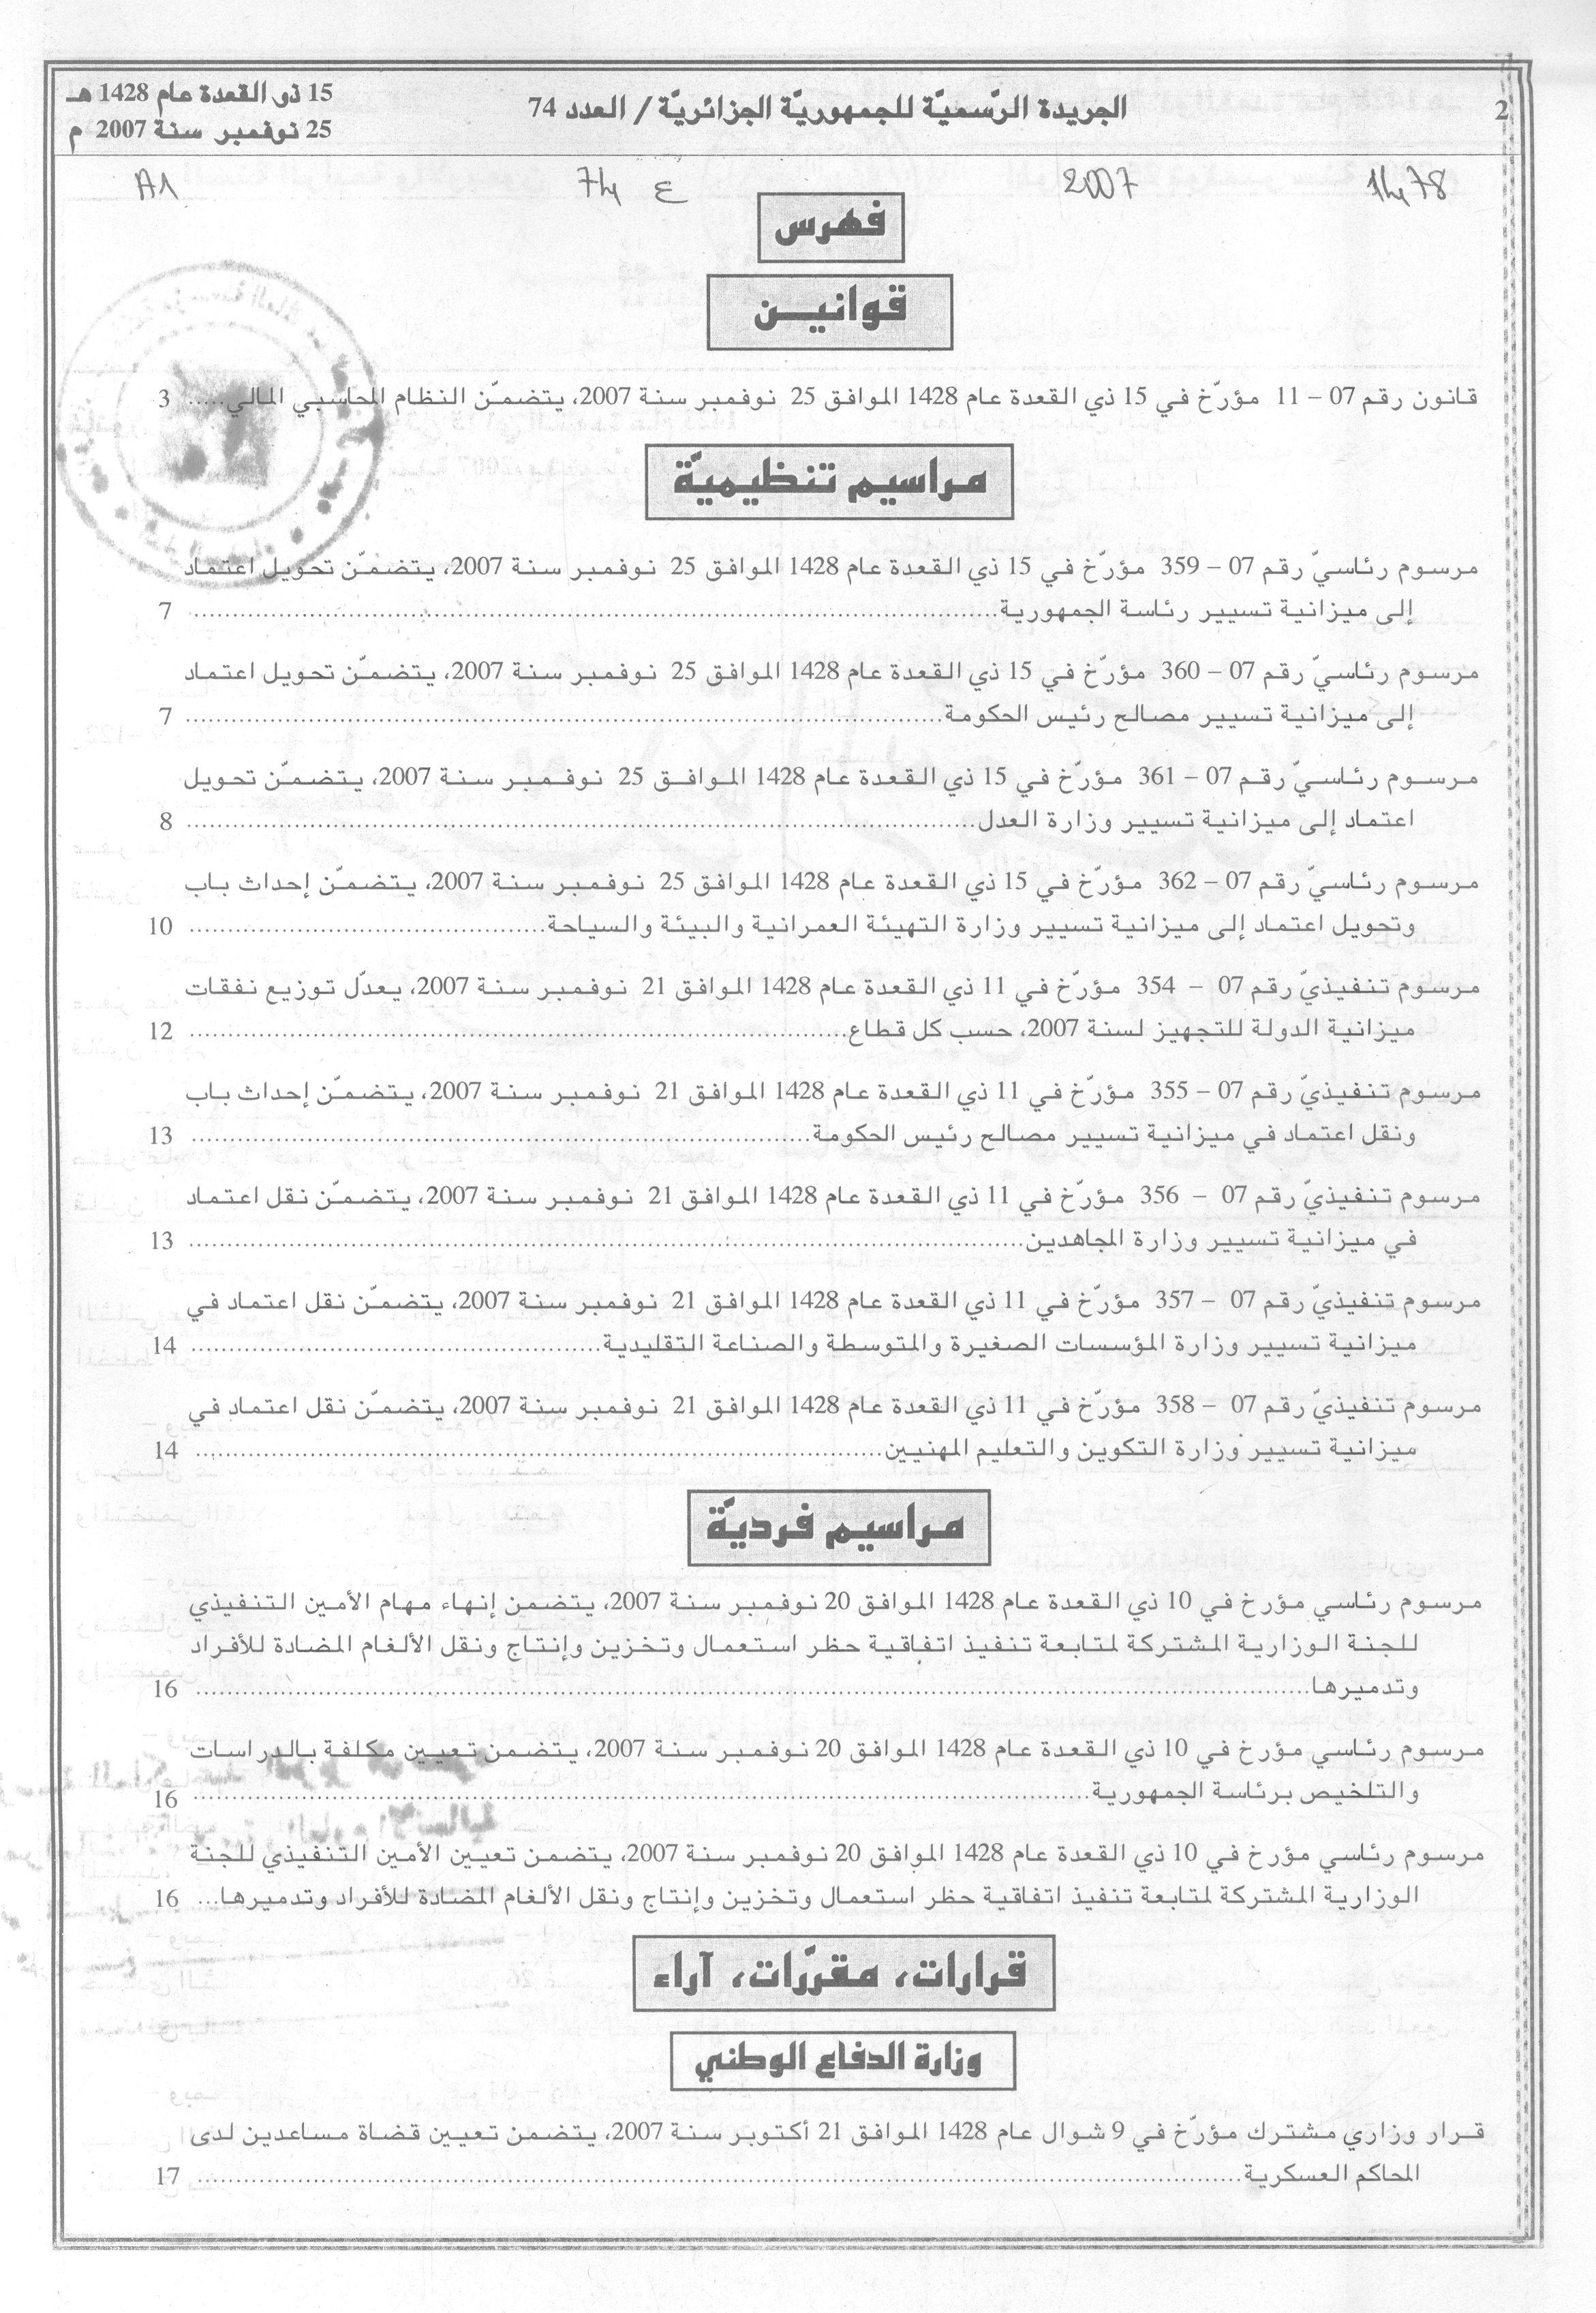 2
الجريدة الرّسميّة للجمهوريّة الجزائريّة / العدد 74
15 ذو القعدة عام 1428 هـ
25 نوفمبر سنة 2007 م
1478 2007 ع 74 A1
فهرس
قوانيـن
قانون رقم 07 – 11 مؤرّخ في 15 ذي القعدة عام 1428 الموافق 25 نوفمبر سنة 2007، يتضمّن النظام المحاسبي المالي..... 3
مراسيم تنظيميّة
مرسوم رئاسيّ رقم 07 – 359 مؤرّخ في 15 ذي القعدة عام 1428 الموافق 25 نوفمبر سنة 2007، يتضمّن تحويل اعتماد
إلى ميزانية تسيير رئاسة الجمهورية..... 7
مرسوم رئاسيّ رقم 07 – 360 مؤرّخ في 15 ذي القعدة عام 1428 الموافق 25 نوفمبر سنة 2007، يتضمّن تحويل اعتماد
إلى ميزانية تسيير مصالح رئيس الحكومة..... 7
مرسوم رئاسيّ رقم 07 – 361 مؤرّخ في 15 ذي القعدة عام 1428 الموافق 25 نوفمبر سنة 2007، يتضمّن تحويل
اعتماد إلى ميزانية تسيير وزارة العدل..... 8
مرسوم رئاسيّ رقم 07 – 362 مؤرّخ في 15 ذي القعدة عام 1428 الموافق 25 نوفمبر سنة 2007، يتضمّن إحداث باب
وتحويل اعتماد إلى ميزانية تسيير وزارة التهيئة العمرانية والبيئة والسياحة..... 10
مرسوم تنفيذيّ رقم 07 – 354 مؤرّخ في 11 ذي القعدة عام 1428 الموافق 21 نوفمبر سنة 2007، يعدّل توزيع نفقات
ميزانية الدولة للتجهيز لسنة 2007، حسب كل قطاع..... 12
مرسوم تنفيذيّ رقم 07 – 355 مؤرّخ في 11 ذي القعدة عام 1428 الموافق 21 نوفمبر سنة 2007، يتضمّن إحداث باب
ونقل اعتماد في ميزانية تسيير مصالح رئيس الحكومة..... 13
مرسوم تنفيذيّ رقم 07 – 356 مؤرّخ في 11 ذي القعدة عام 1428 الموافق 21 نوفمبر سنة 2007، يتضمّن نقل اعتماد
في ميزانية تسيير وزارة المجاهدين..... 13
مرسوم تنفيذيّ رقم 07 – 357 مؤرّخ في 11 ذي القعدة عام 1428 الموافق 21 نوفمبر سنة 2007، يتضمّن نقل اعتماد في
ميزانية تسيير وزارة المؤسسات الصغيرة والمتوسطة والصناعة التقليدية..... 14
مرسوم تنفيذيّ رقم 07 – 358 مؤرّخ في 11 ذي القعدة عام 1428 الموافق 21 نوفمبر سنة 2007، يتضمّن نقل اعتماد في
ميزانية تسيير وزارة التكوين والتعليم المهنيين..... 14
مراسيم فرديّة
مرسوم رئاسي مؤرخ في 10 ذي القعدة عام 1428 الموافق 20 نوفمبر سنة 2007، يتضمن إنهاء مهام الأمين التنفيذي
للجنة الوزارية المشتركة لمتابعة تنفيذ اتفاقية حظر استعمال وتخزين وإنتاج ونقل الألغام المضادة للأفراد
وتدميرها..... 16
مرسوم رئاسي مؤرخ في 10 ذي القعدة عام 1428 الموافق 20 نوفمبر سنة 2007، يتضمن تعيين مكلفة بالدراسات
والتلخيص برئاسة الجمهورية..... 16
مرسوم رئاسي مؤرخ في 10 ذي القعدة عام 1428 الموافق 20 نوفمبر سنة 2007، يتضمن تعيين الأمين التنفيذي للجنة
الوزارية المشتركة لمتابعة تنفيذ اتفاقية حظر استعمال وتخزين وإنتاج ونقل الألغام المضادة للأفراد وتدميرها... 16
قرارات، مقرّرات، آراء
وزارة الدفاع الوطني
قرار وزاري مشترك مؤرّخ في 9 شوال عام 1428 الموافق 21 أكتوبر سنة 2007، يتضمن تعيين قضاة مساعدين لدى
المحاكم العسكرية..... 17